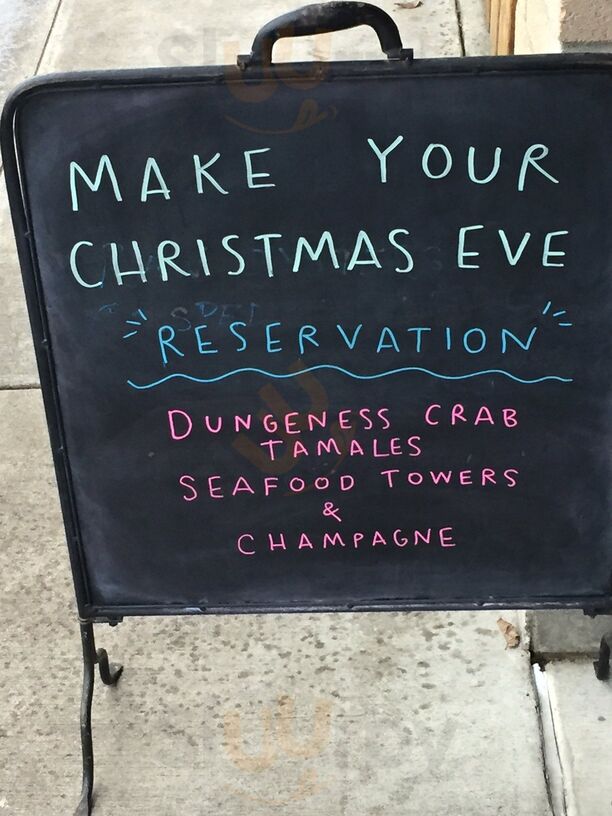 MAKE YOUR
CHRISTMAS EVE
RESERVATION
DUNGENESS CRAB
TAMALES
SEAFOOD TOWERS
&
CHAMPAGNE